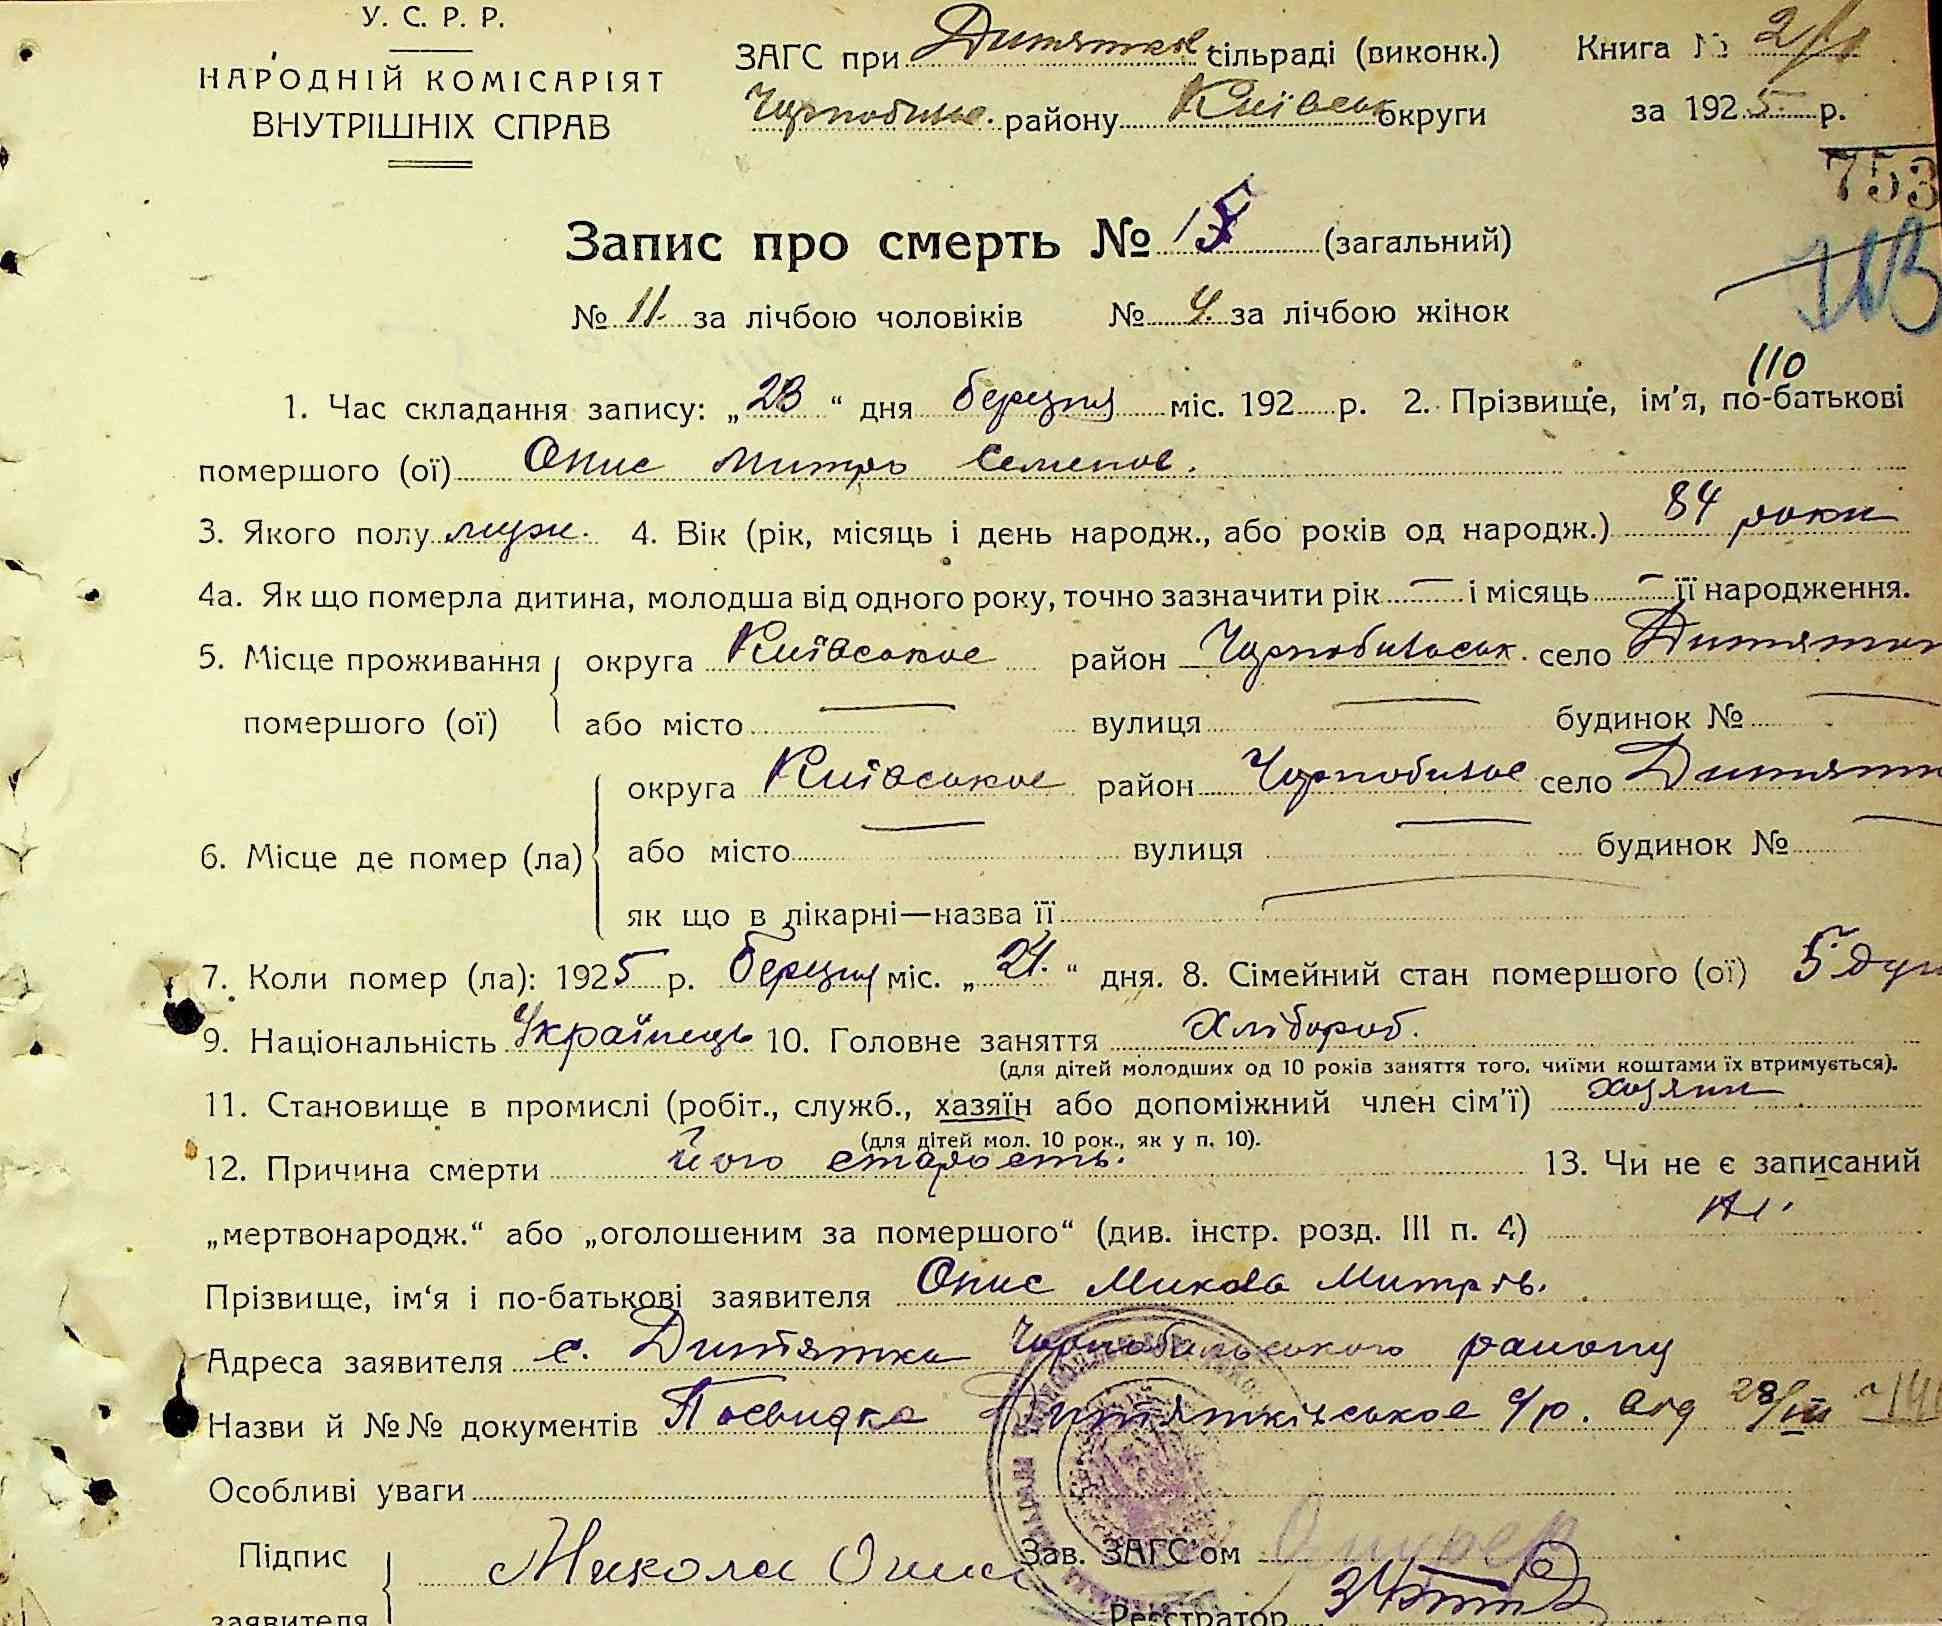 У. С. Р. Р.
НАРОДНІЙ КОМІСАРІЯТ
ВНУТРІШНІХ СПРАВ
ЗАГС при Дитятків сільраді (виконк.) Книга №
Чорнобильс. району Київськ округи за 1925 р.
753
Запис про смерть № 15 (загальний)
№ 11. за лічбою чоловіків № 4. за лічбою жінок
110
1. Час складання запису: „23“ дня березня міс. 192 р. 2. Прізвище, ім'я, по-батькові
помершого (ої) Опис Митро Семенов.
3. Якого полу муж. 4. Вік (рік, місяць і день народж., або років од народж.) 84 роки
4а. Як що померла дитина, молодша від одного року, точно зазначити рік — і місяць — її народження.
5. Місце проживання округа Київської район Чорнобильськ. село Дитятки
помершого (ої) або місто — вулиця — будинок № —
округа Київської район Чорнобильс село Дитятк
6. Місце де помер (ла) або місто — вулиця — будинок № —
як що в лікарні—назва її —
7. Коли помер (ла): 1925 р. березня міс. „21.“ дня. 8. Сімейний стан помершого (ої) 5 душ
9. Національність Українець 10. Головне заняття Хлібороб.
(для дітей молодших од 10 років заняття того, чиїми коштами їх втримується).
11. Становище в промислі (робіт., служб., хазяїн або допоміжний член сім'ї) хозяин
(для дітей мол. 10 рок., як у п. 10).
12. Причина смерти його старость. 13. Чи не є записаний
„мертвонародж.“ або „оголошеним за помершого“ (див. інстр. розд. III п. 4) Ні.
Прізвище, ім'я і по-батькові заявителя Опис Микола Митрів.
Адреса заявителя с. Дитятки Чорнобильського району
Назви й №№ документів Посвідка Дитятківської с/р. від 28/III
Особливі уваги
Підпис Микола Опис Зав. ЗАГС'ом
заявителя Реєстратор